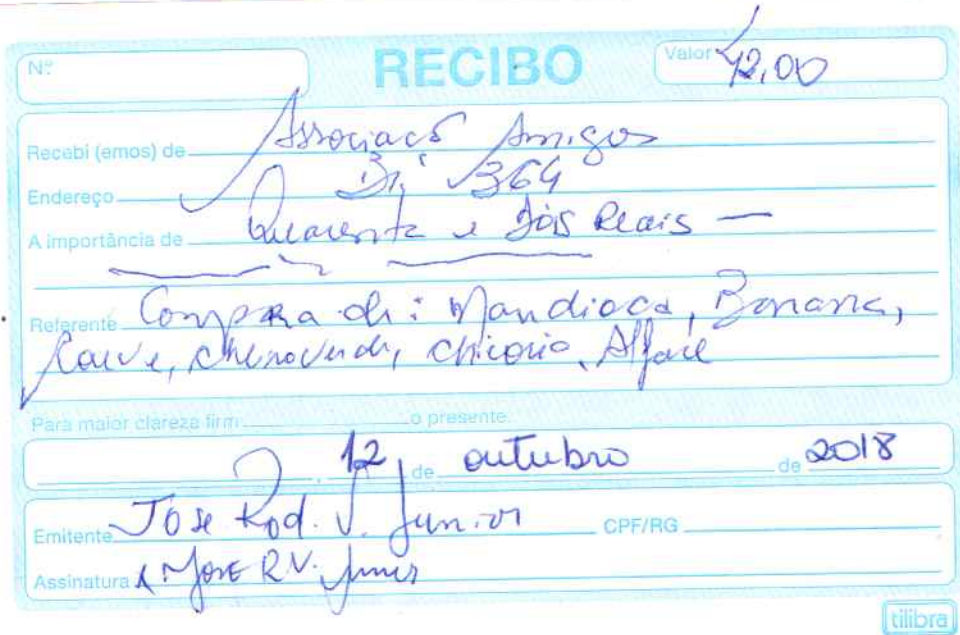 Nº RECIBO Valor 42,00
Recebi (emos) de Associacõ Amigos
Endereço Br, 364
A importância de Quarenta e Dois Reais —
Referente Compra de: Mandioca, Banana,
Couve, cheiroverde, chicoria, Alface
Para maior clareza firm o presente.
12 de outubro de 2018
Emitente José Rod. V. Junior CPF/RG
Assinatura José R.V. Junior
tilibra